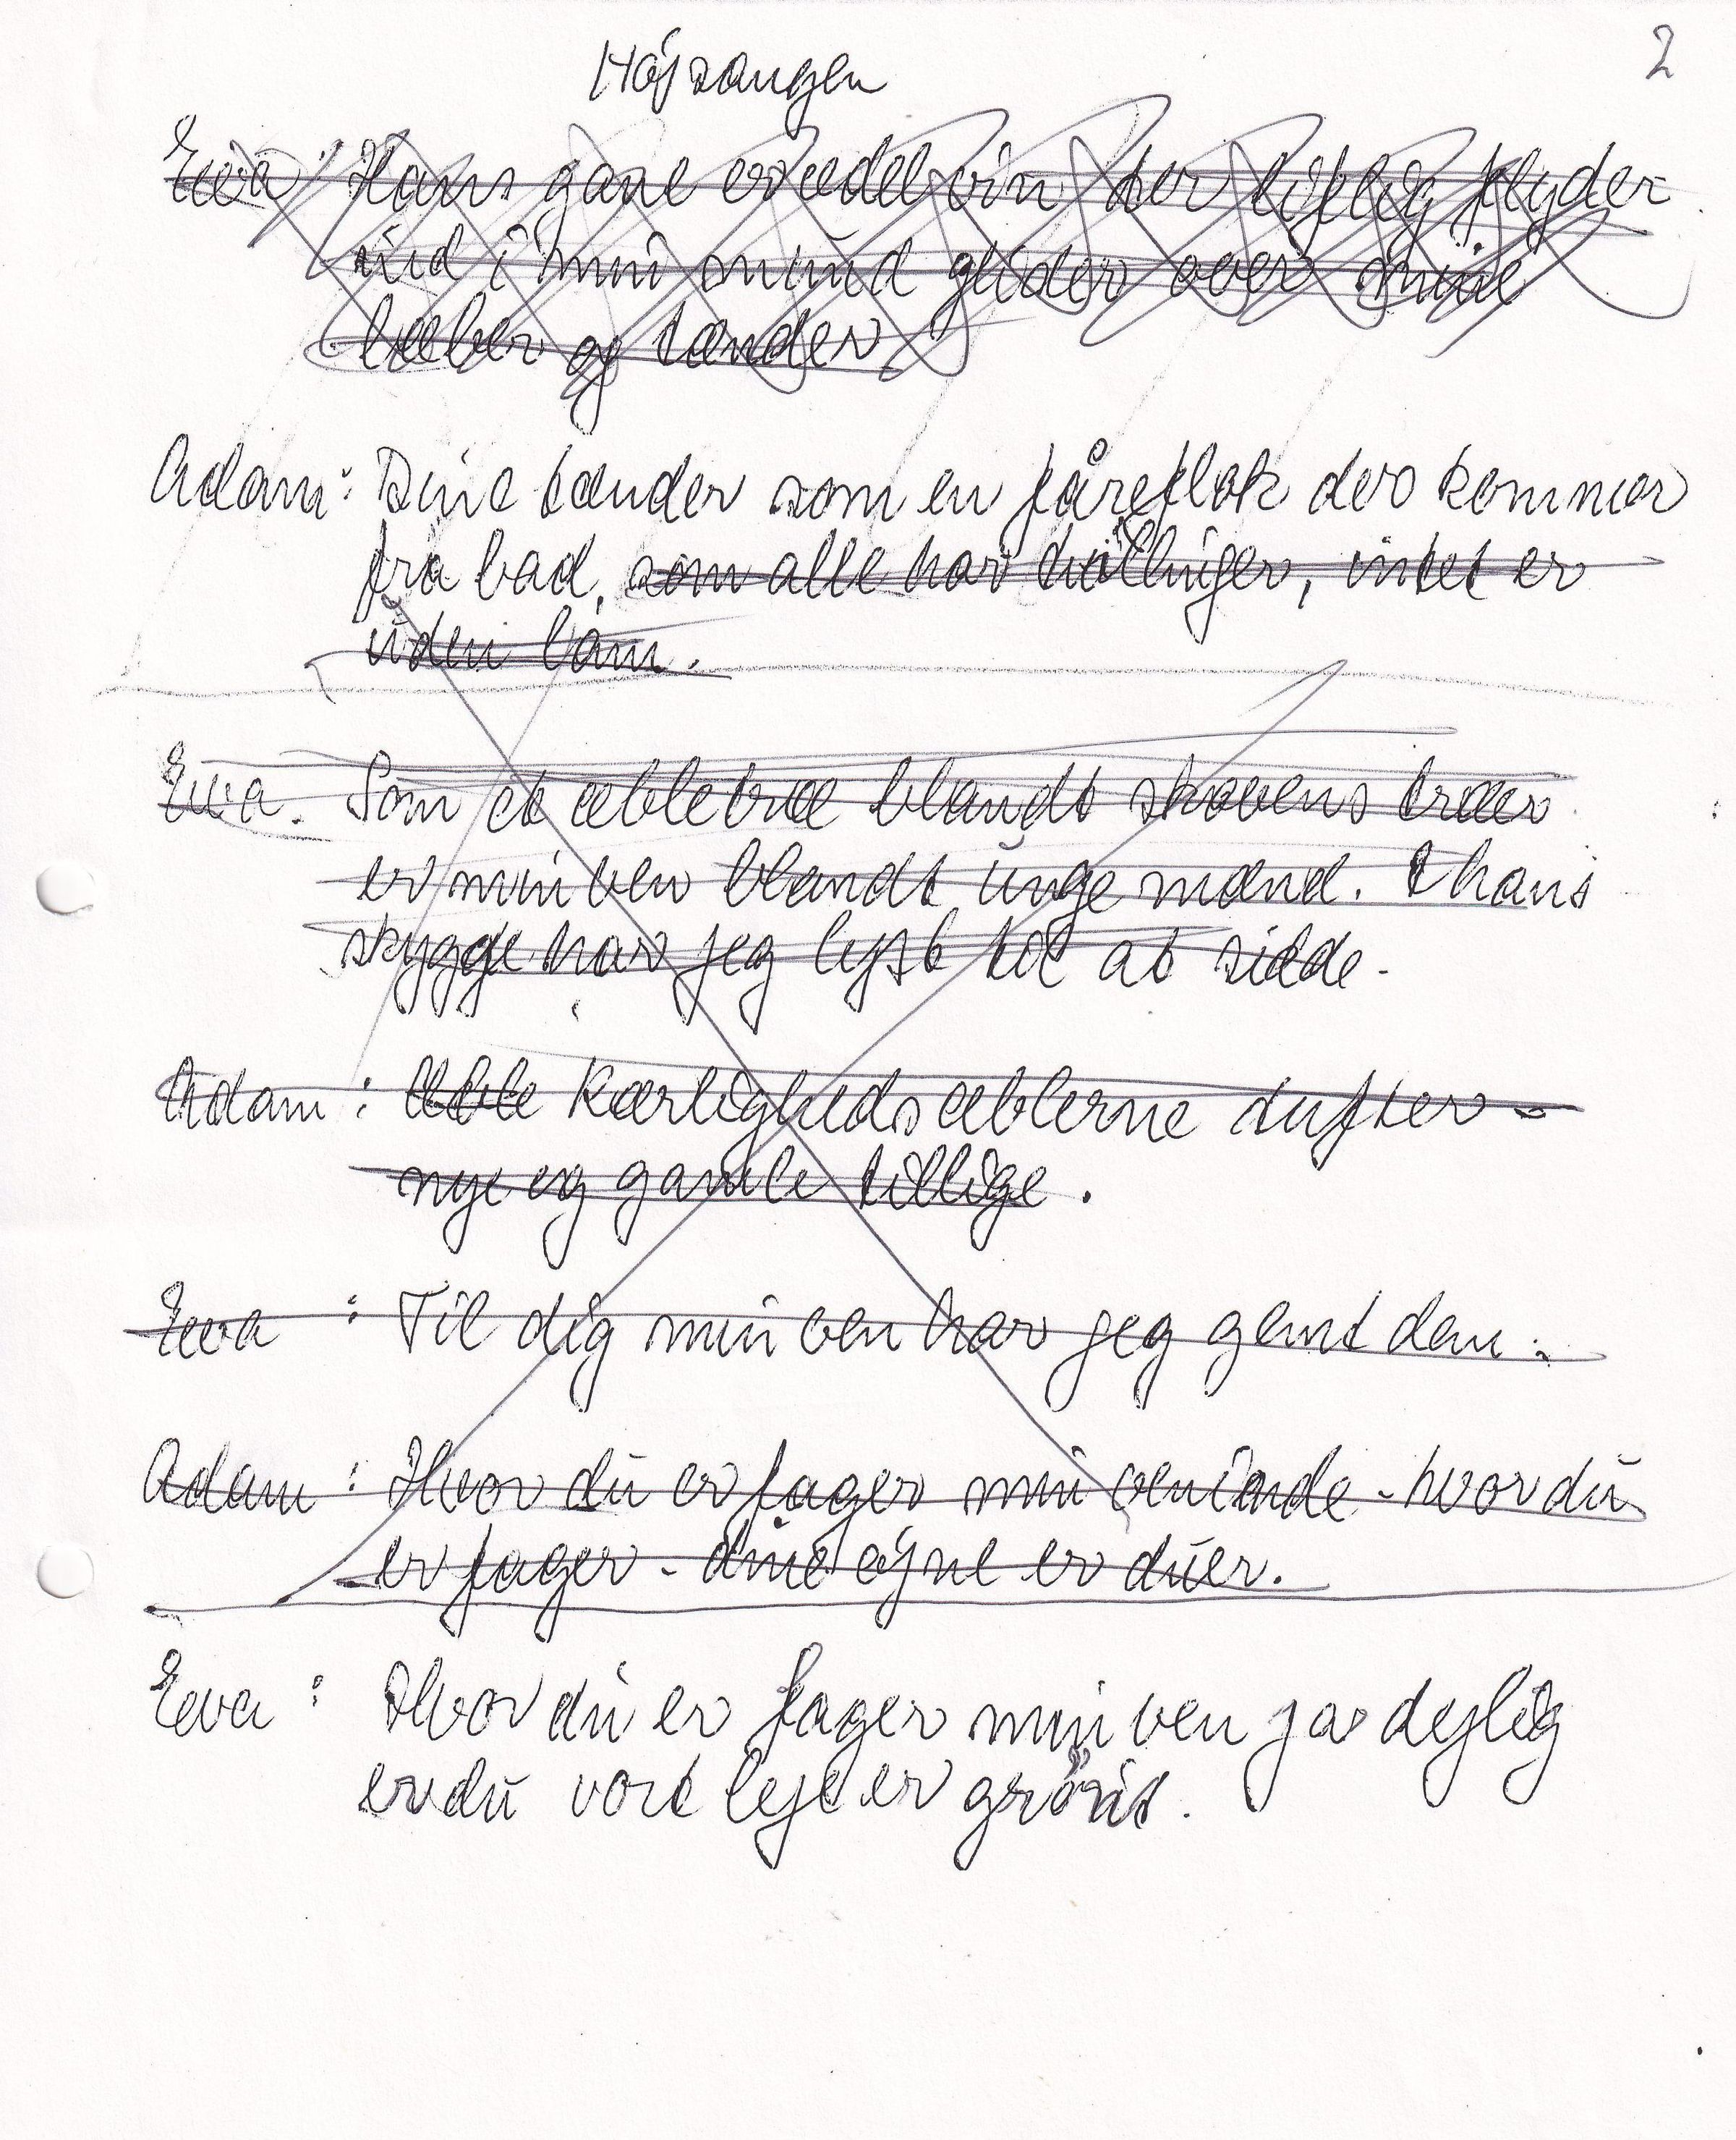 Højsangen
2
Eva : Hans gane er ædel vin der liflig flyder
ind i min mund glider over mine
læber og tænder
Adam : Dine tænder som en fåreflok der kommer
fra bad, som alle har tvillinger, intet er
uden lam.
Eva. Som et æbletræ blandt skovens træer
er min ven blandt unge mænd. I hans
skygge har jeg lyst til at sidde.
Adam : Æble Kærlighedsæblerne dufter -
nye og gamle tillige.
Eva : Til dig min ven har jeg gemt dem.
Adam : Hvor du er fager min veninde - hvor du
er fager - dine øjne er duer.
Eva : Hvor du er fager min ven ja dejlig
er du vort leje er grønt.